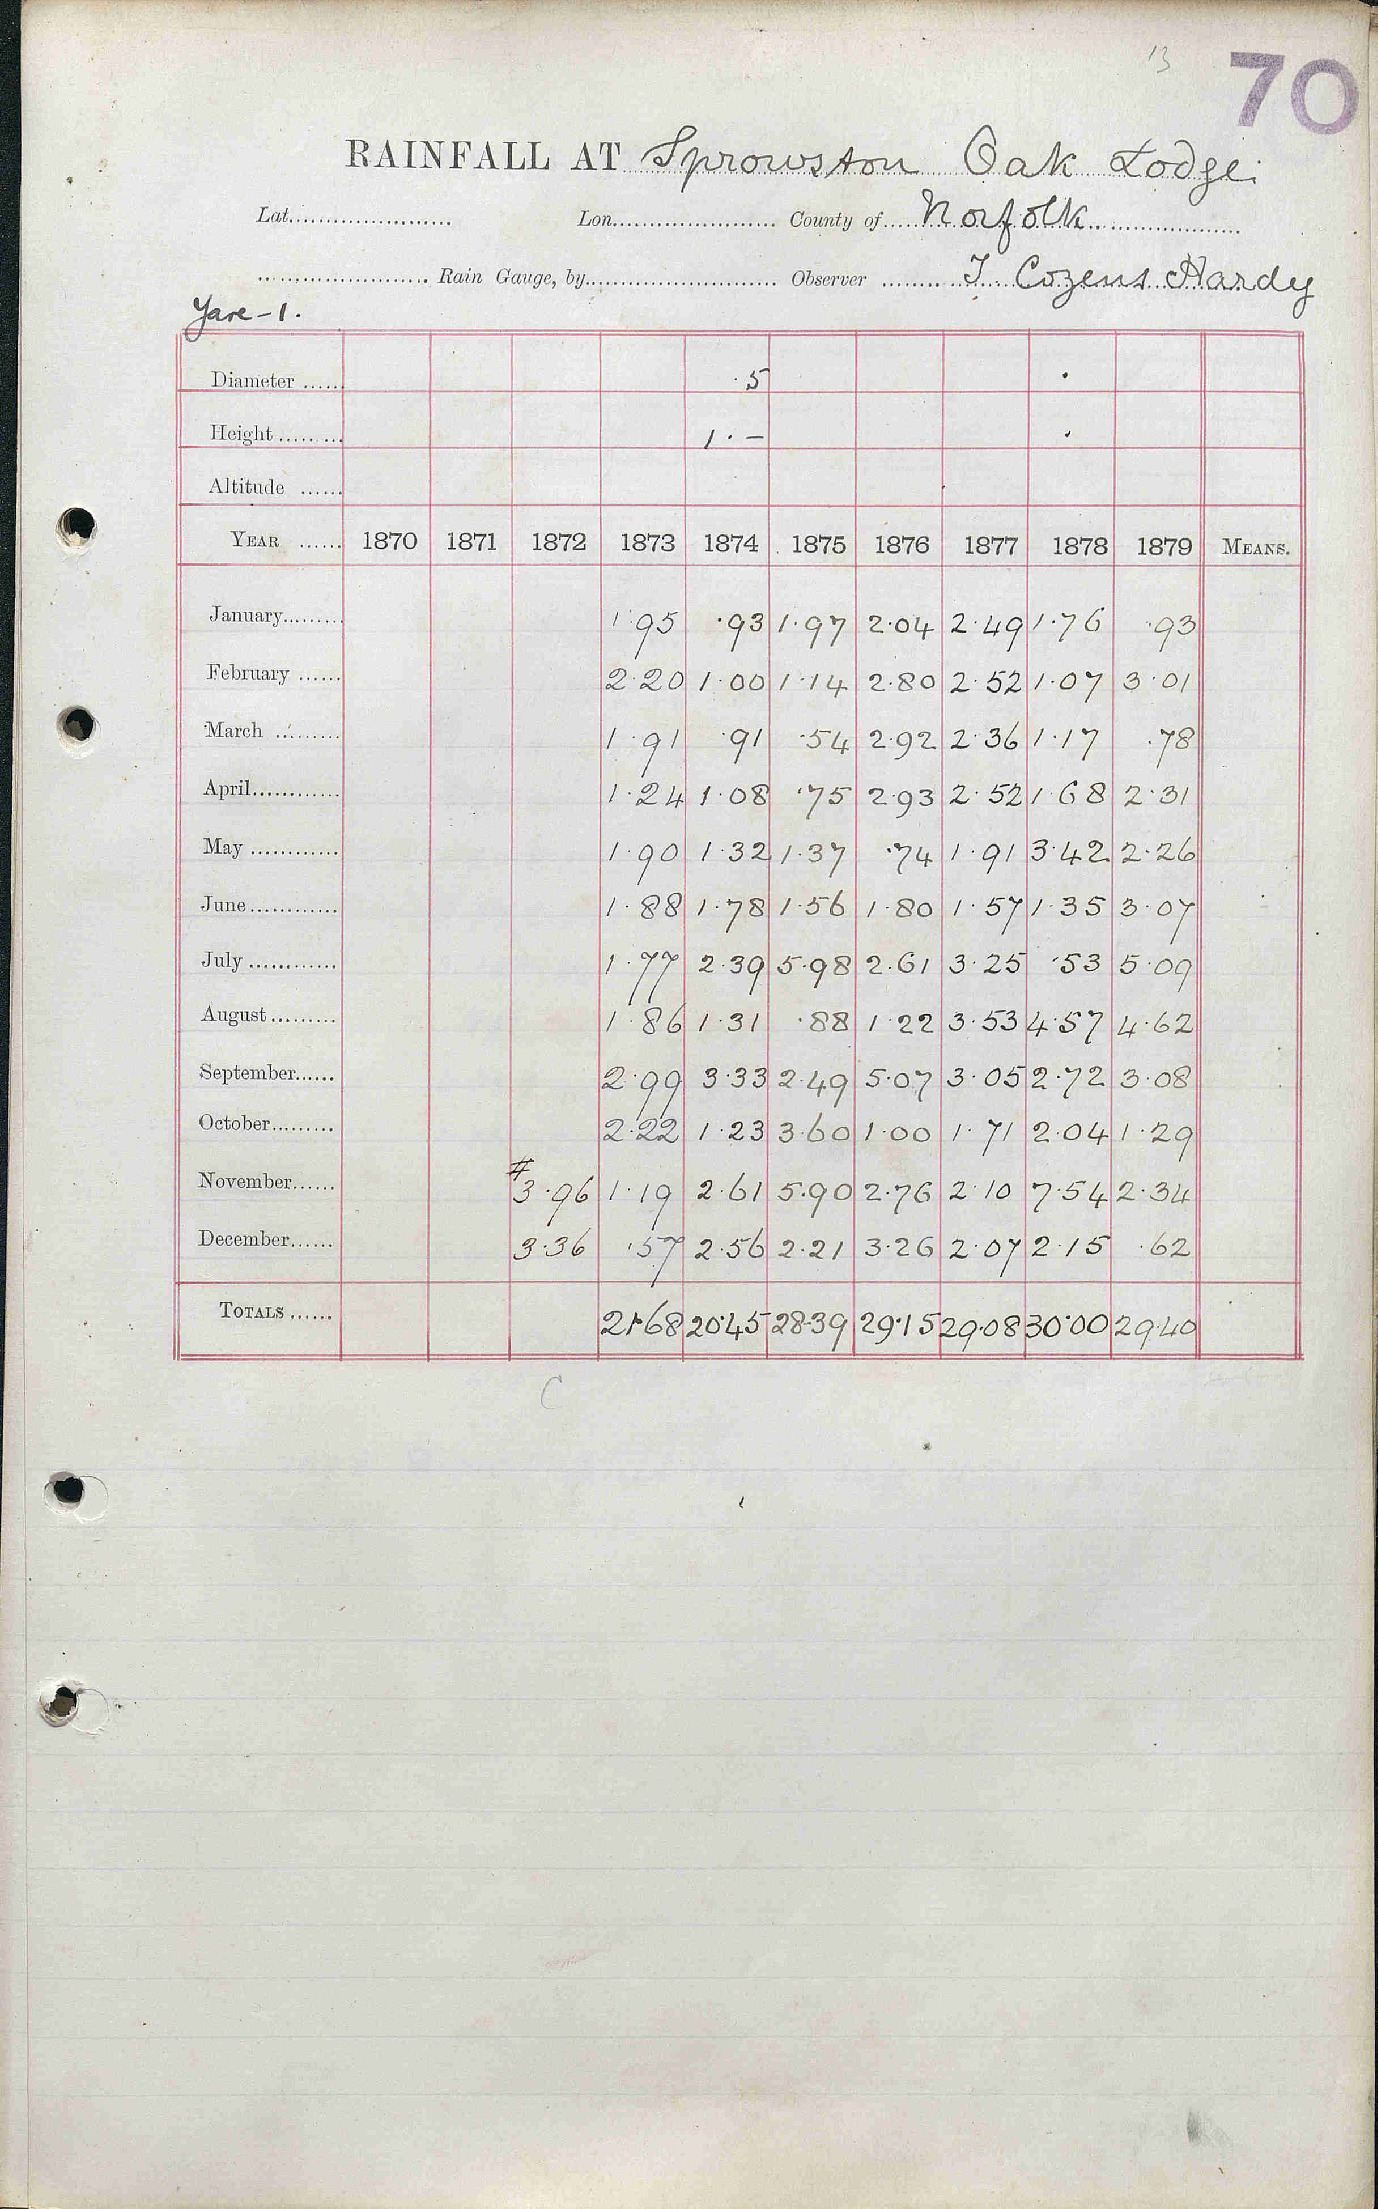 13
70
RAINFALL AT Sprowston Oak Lodge
Lat...................... Lon...................... County of Norfolk
...................... Rain Gauge, by...................... Observer T Cozens Hardy
Yare - 1.
Diameter ...... 5
Height ......... 1 . —
Altitude ......
YEAR ...... 1870 1871 1872 1873 1874 1875 1876 1877 1878 1879 MEANS.
January......... 1.95 .93 1.97 2.04 2.49 1.76 .93
February ...... 2.20 1.00 1.14 2.80 2.52 1.07 3.01
March ......... 1.91 .91 .54 2.92 2.36 1.17 .78
April............ 1.24 1.08 .75 2.93 2.52 1.68 2.31
May ............ 1.90 1.32 1.37 .74 1.91 3.42 2.26
June............ 1.88 1.78 1.56 1.80 1.57 1.35 3.07
July ............ 1.77 2.39 5.98 2.61 3.25 .53 5.09
August ......... 1.86 1.31 .88 1.22 3.53 4.57 4.62
September...... 2.99 3.33 2.49 5.07 3.05 2.72 3.08
October......... 2.22 1.23 3.60 1.00 1.71 2.04 1.29
November...... # 3.96 1.19 2.61 5.90 2.76 2.10 7.54 2.34
December...... 3.36 .57 2.56 2.21 3.26 2.07 2.15 .62
TOTALS ...... 21.68 20.45 28.39 29.15 29.08 30.00 29.40
C